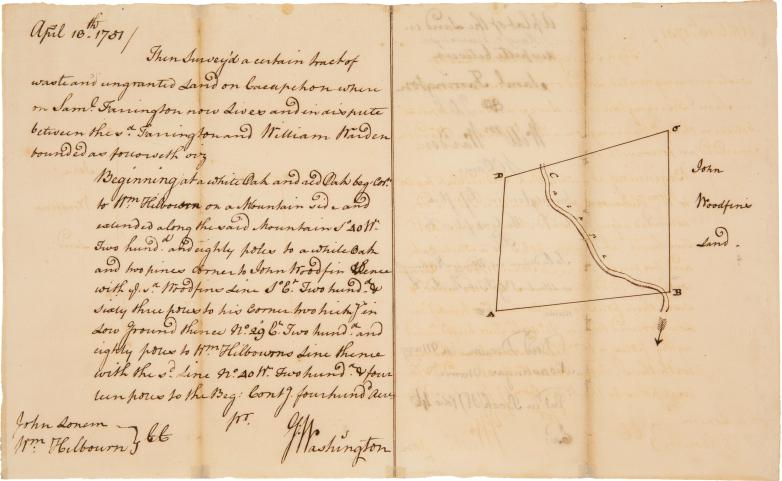 April 13.th 1751/
Then Survey'd a certain tract of
waste and ungranted Land on Cacapehon where
on Saml. Farrington now Lives and in dispute
between the sd. Farrington and William Warden
bounded as followeth viz
Beginning at a white Oak and red Oak beg. Cor.
to Wm. Hilbourn on a Mountain side and
extended along the said Mountain So. 40 Wt.
Two hund.d and eighty poles to a white Oak
and two pines corner to John Woodfin thence
with J. sd. Woodfins Line So. Et. Two hund.d &
sixty three poles to his Corner two hick.y in
Low Ground thence No. 29 Et. Two hund.d and
eighty poles to Wm. Hilbourns Line thence
with the sd. Line No. 40 Wt. Two hund.d & four
teen poles to the Beg: Cont.g four hund.d Acres
John Lonem
Wm. Hilbourn } CC
pr.
G. Washington
A
C
B
A
Cacape
John
Woodfin's
Land.